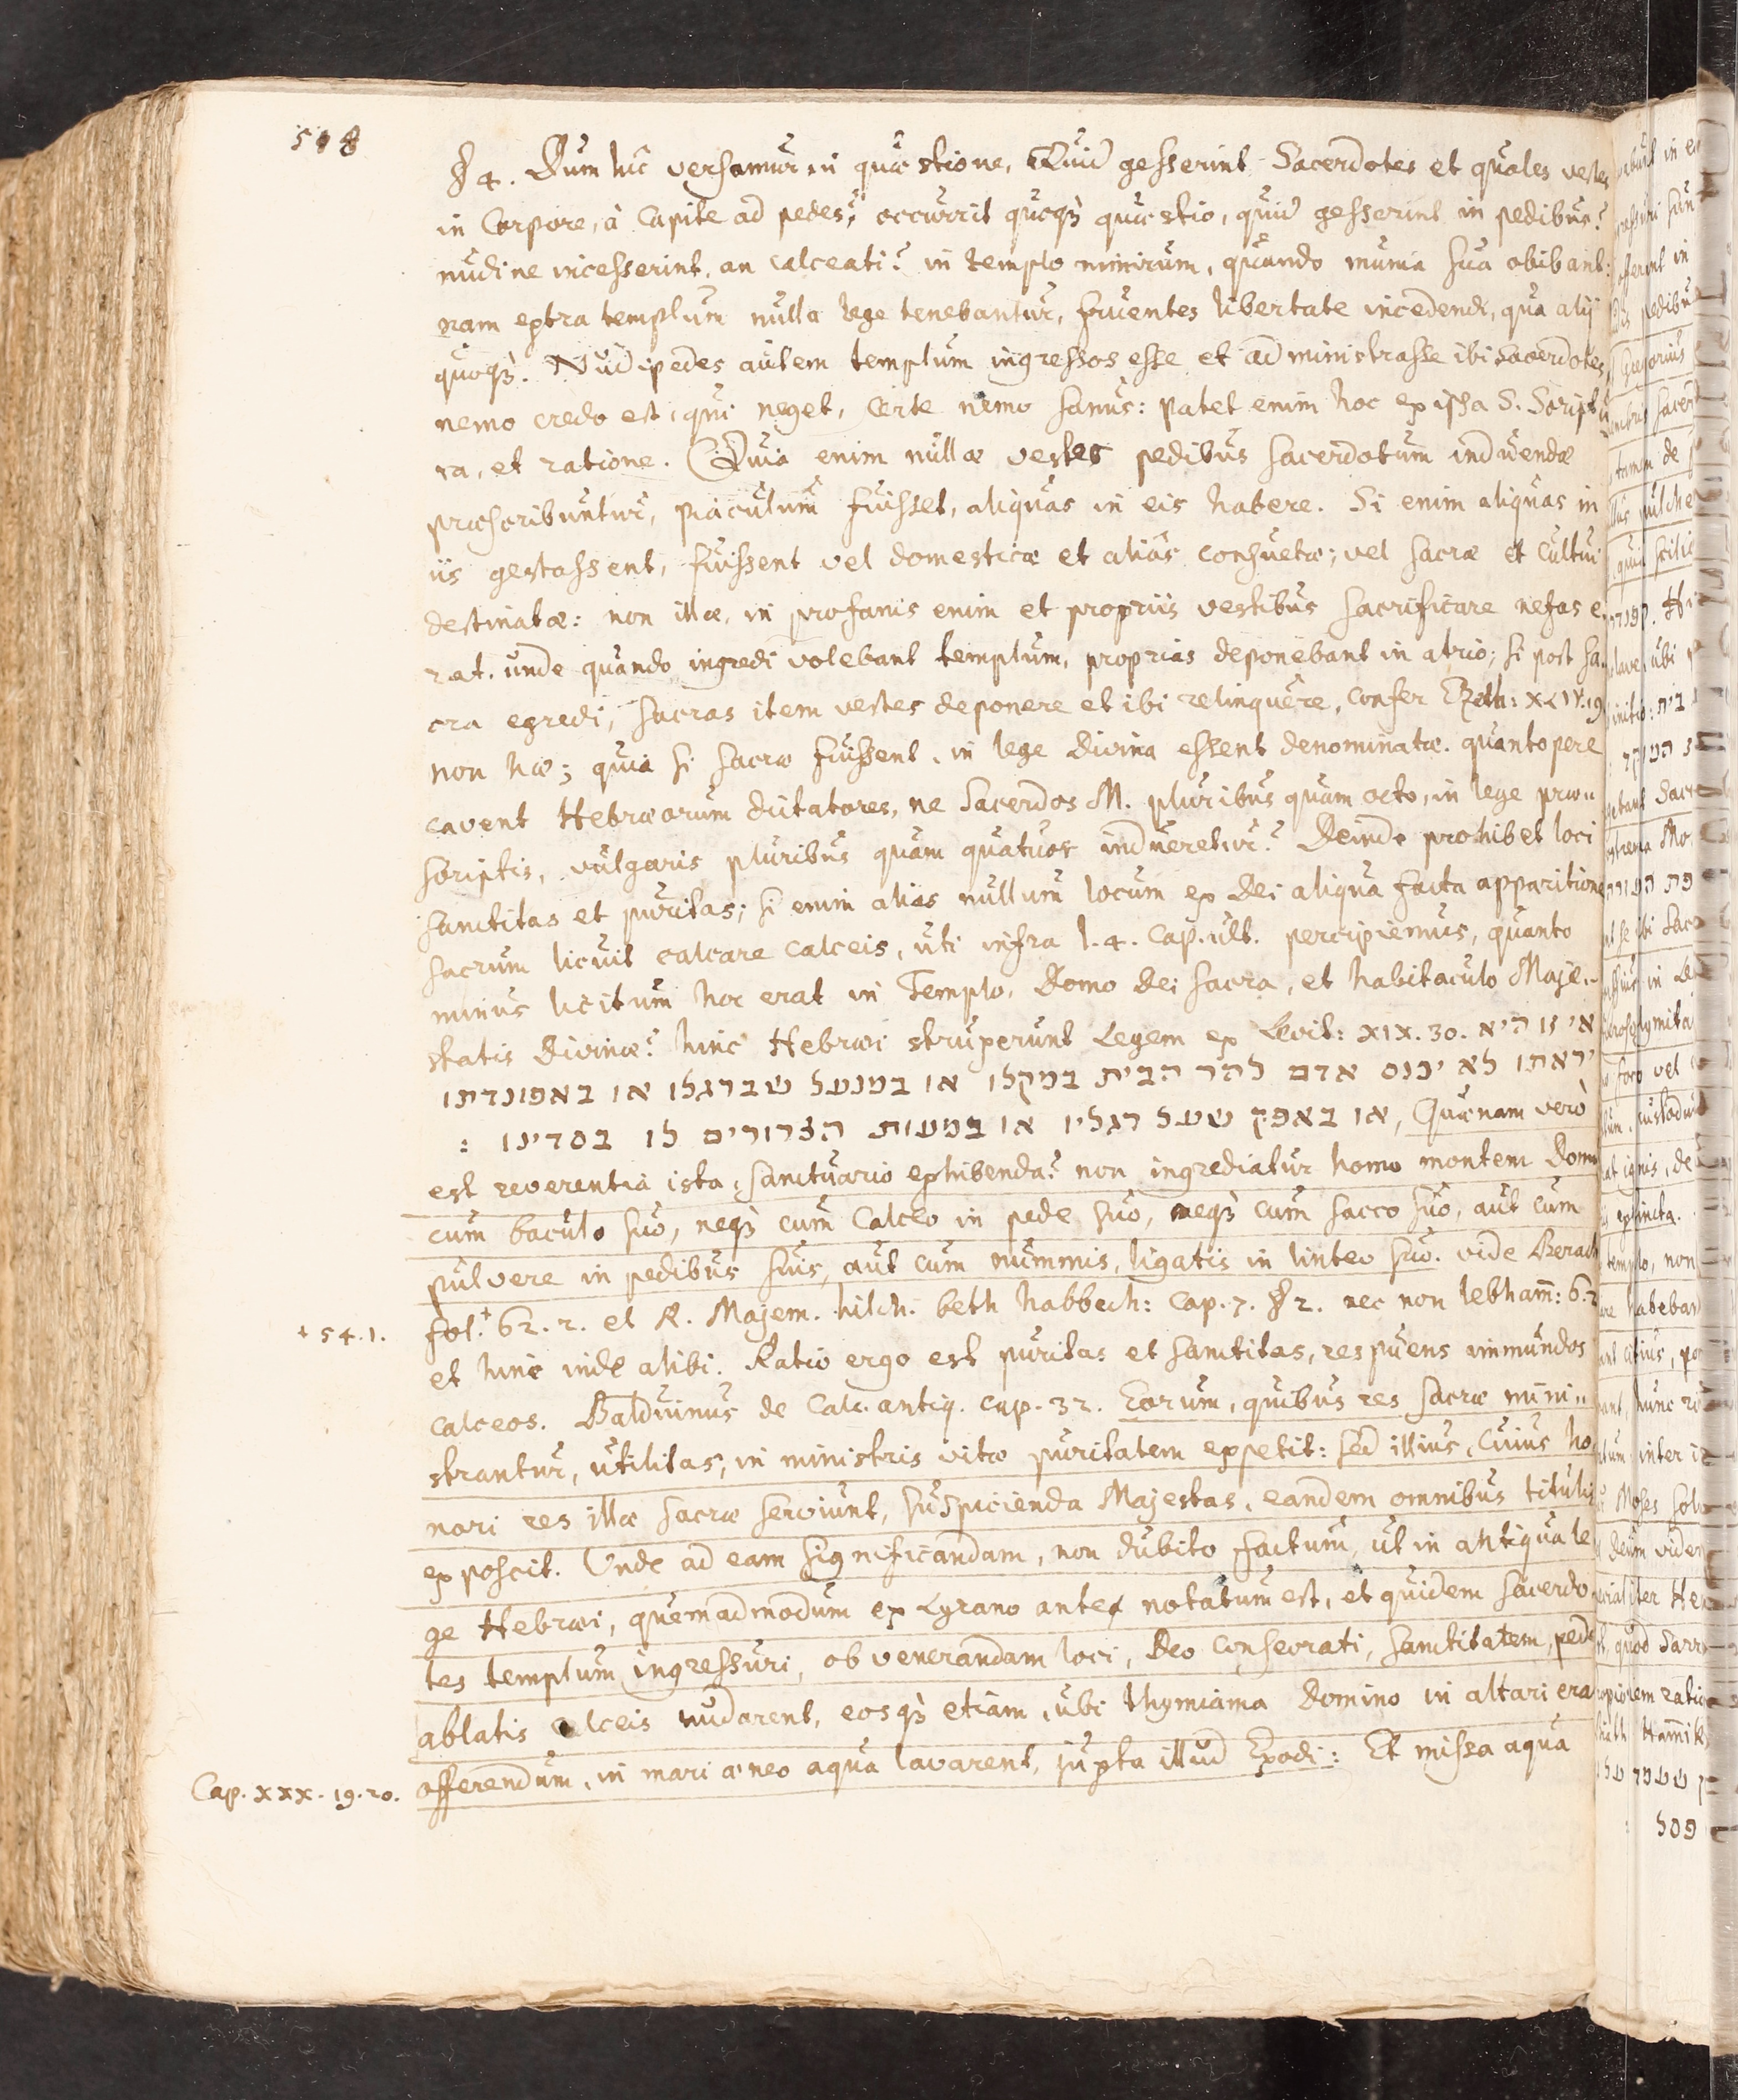 518
§ 4. Dum hîc versamur in quæstione, Quid gesserint Sacerdotes et quales vestes
in Corpore, à Capite ad pedes; occurrit quoqꝫ quæstio, quid gesserint in pedibus?
nudine incesserint, an calceati? in templo nimirum, quando munia sua obibant:
nam extra templum nulla lege tenebantur, fruentes libertate incedendi, qua alij
quoqꝫ. Nudipedes autem templum ingressos esse et administrasse ibi Sacerdotes,
nemo credo est, qui neget, certe nemo sanus: patet enim hoc ex ipsa S. Scriptu
ra, et ratione. Quia enim nullæ vestes pedibus sacerdotum induendæ
præscribuntur, piaculum fuisset, aliquas in eis habere. Si enim aliquas in
iis gestassent, fuissent vel domesticæ et aliàs consuetæ; vel sacræ et cultui
destinatæ: non illæ, in profanis enim et propriis vestibus sacrificare nefas e
rat. unde quando ingredi volebant templum, proprias deponebant in atrio; si post sa
cra egredi, sacras item vestes deponere et ibi relinquere, confer Ezech: XLIV. 19
non hæ; quia si sacræ fuissent, in lege Divina essent denominatæ. quantopere
cavent Hebræorum dictatores, ne Sacerdos M. pluribus quàm octo, in lege præ„
scriptis, vulgaris pluribus quàm quatuor indueretur? Deinde prohibet loci
sanctitas et puritas; si enim aliàs nullum locum ex Dei aliqua facta apparitione
sacrum licuit calcare calceis, uti infra l. 4. Cap. ult. percipiemus, quanto
minus licitum hoc erat in Templo, Domo Dei sacra, et habitaculo Maje„
statis Divinæ? hinc Hebræi struxerunt Legem ex Levit: XIX. 30. אי זו היא
יראתו לא יכנס אדם להר הבית במקלו או במנעל שברגלו או באפונדתו
או באפק שעל רגליו או במעות הצרורים לו בסדינו : , Quænam verò
est reverentia ista, sanctuario exhibenda? non ingrediatur homo montem Domu
cum baculo suo, neqꝫ cum calceo in pede suo, neqꝫ cum sacco suo, aut cum
pulvere in pedibus suis, aut cum nummis, ligatis in linteo suo. vide Berach
+ 54. 1. fol.+ 62. 2. et R. Majem. hilch. beth habbech: Cap. 7. § 2. nec non Iebham̄: 6. 2
et hinc inde alibi. Ratio ergo est puritas et sanctitas, respuens immundos
calceos. Balduinus de Calc. antiq. cap. 32. Eorum, quibus res sacræ mini„
strantur, utilitas, in ministris vitæ puritatem expetit: sed illius, cuius ho
nori res illæ sacræ serviunt, suspicienda Majestas, eandem omnibus titulis
exposcit. Unde ad eam significandam, non dubito factum, ut in antiqua le
ge Hebræi, quemadmodum ex Lyrano antea notatum est, et quidem sacerdo
tes templum ingressuri, ob venerandam loci, Deo consecrati, sanctitatem, pede
ablatis calceis nudarent, eosqꝫ etiam, ubi thymiama Domino in altari era
Cap. XXX. 19. 20. offerendum, in mari æneo aqua lavarent, juxta illud Exodi: Et missa aqua